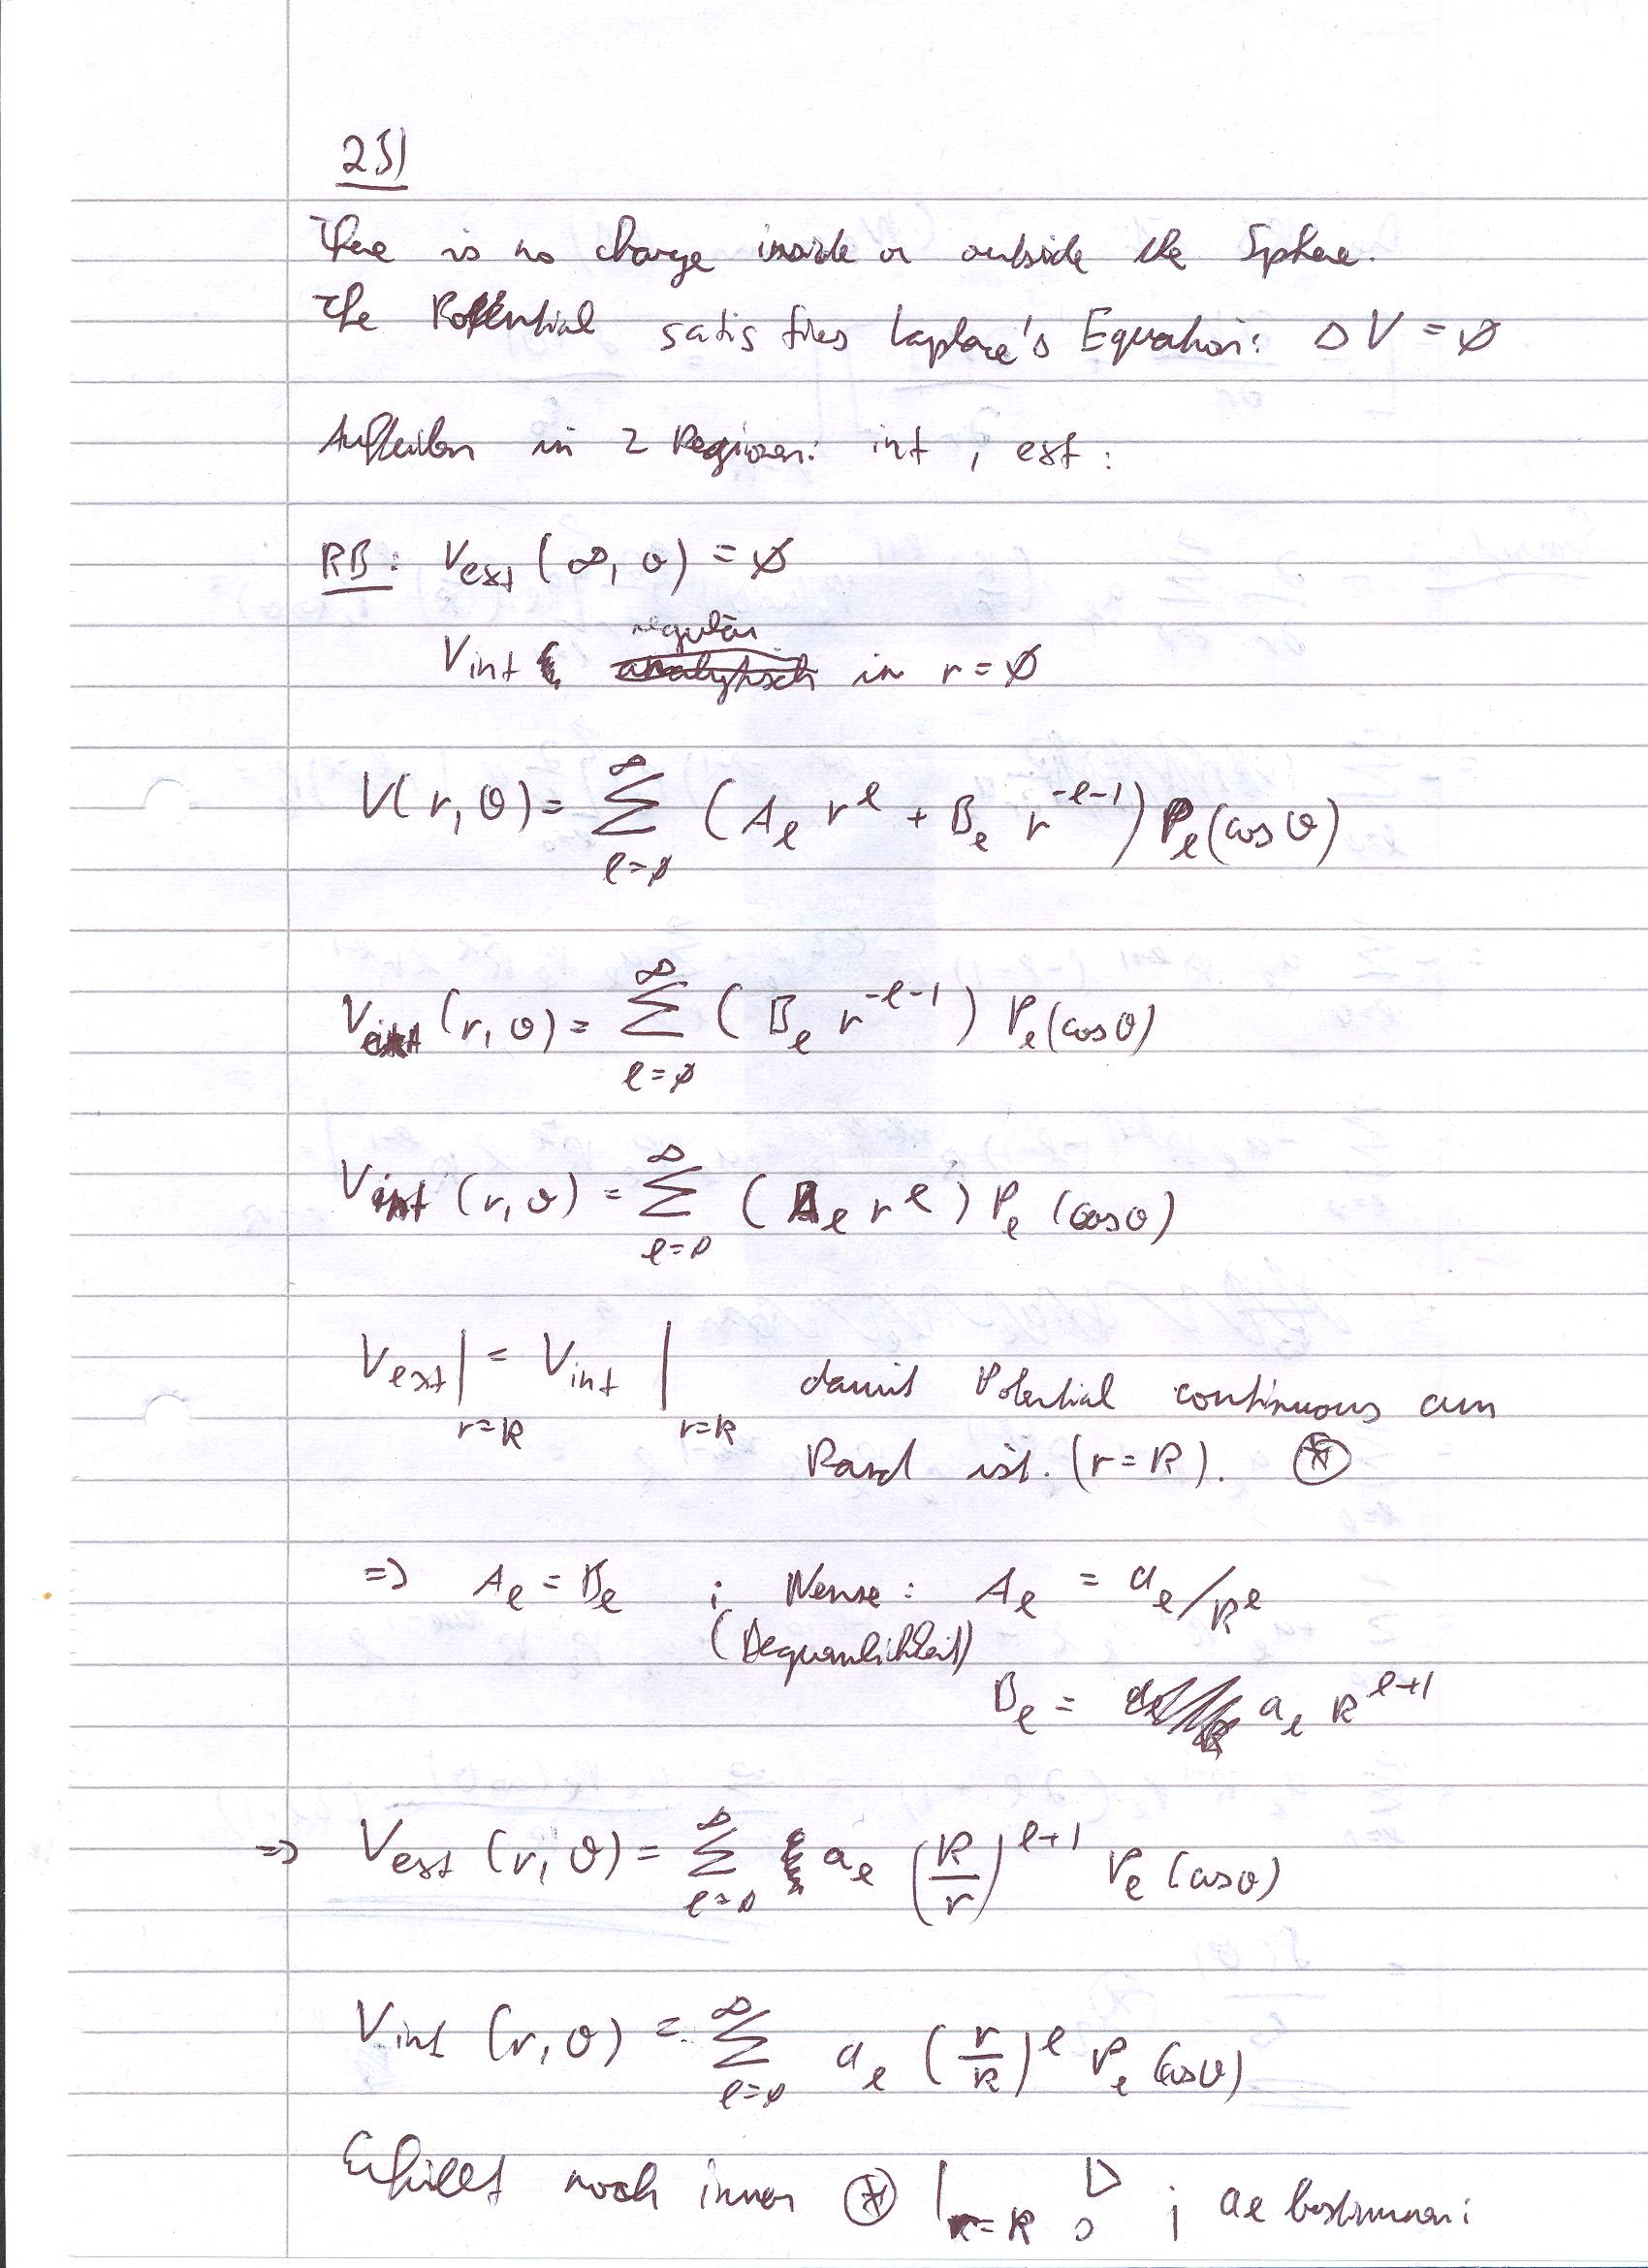 25)
There is no charge inside or outside the Sphere.
The Potential satisfies Laplace's Equation: Δ V = ∅
Aufteilen in 2 Regionen: int , ext :
RB: V_ext (∞, θ) = ∅
V_int regulär in r = ∅
V(r, θ) = ∑_{l=∅}^{∞} (A_l r^l + B_l r^{-l-1}) P_l (cos θ)
V_ext (r, θ) = ∑_{l=∅}^{∞} (B_l r^{-l-1}) P_l (cos θ)
V_int (r, θ) = ∑_{l=0}^{∞} (A_l r^l) P_l (cos θ)
V_ext |_{r=R} = V_int |_{r=R} damit Potential continuous am
Rand ist. (r = R). ⊛
=> A_l = B_l ; Nenne: A_l = a_l / R^l
(Bequemlichkeit)
B_l = a_l R^{l+1}
=> V_ext (r, θ) = ∑_{l=0}^{∞} a_l (R/r)^{l+1} P_l (cos θ)
V_int (r, θ) = ∑_{l=∅}^{∞} a_l (r/R)^l P_l (cos θ)
Erfüllt noch immer ⊛ |_{r=R} ! ; a_l bestimmen: